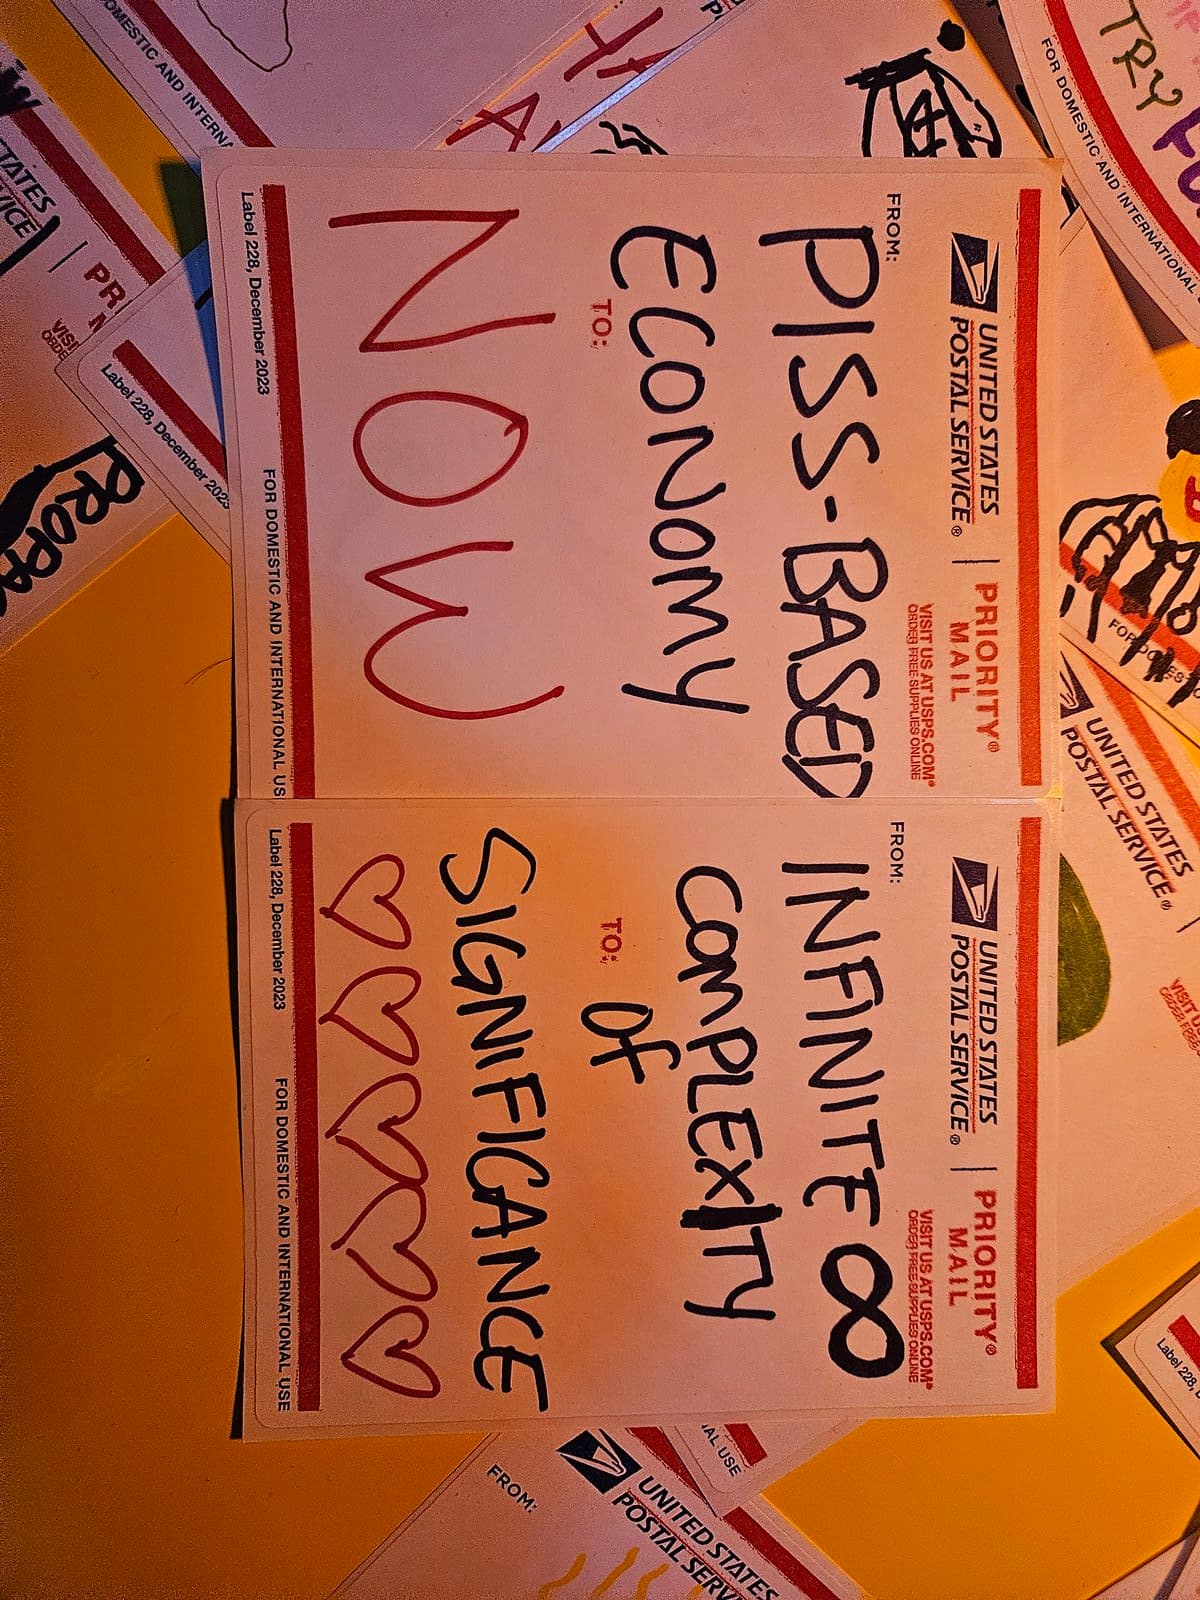 UNITED STATES
POSTAL SERVICE®
PRIORITY®
MAIL
VISIT US AT USPS.COM®
ORDER FREE SUPPLIES ONLINE
FROM:
PISS-BASED
ECONOMY
TO:
NOW
Label 228, December 2023
FOR DOMESTIC AND INTERNATIONAL US
UNITED STATES
POSTAL SERVICE®
PRIORITY®
MAIL
VISIT US AT USPS.COM®
ORDER FREE SUPPLIES ONLINE
FROM:
INFINITE ∞
COMPLEXITY
TO:
OF
SIGNIFICANCE
♡♡♡♡♡
Label 228, December 2023
FOR DOMESTIC AND INTERNATIONAL USE
TRY
FOR DOMESTIC AND INTERNATIONAL
UNITED STATES
POSTAL SERVICE®
DOMESTIC AND INTERNA
HA
TATES
VICE
PR
VISI
ORDE
Label 228, December 2023
PROPA
FROM:
UNITED STATES
POSTAL SERV
AL USE
Label 228,
VISIT U
ORDER FREE